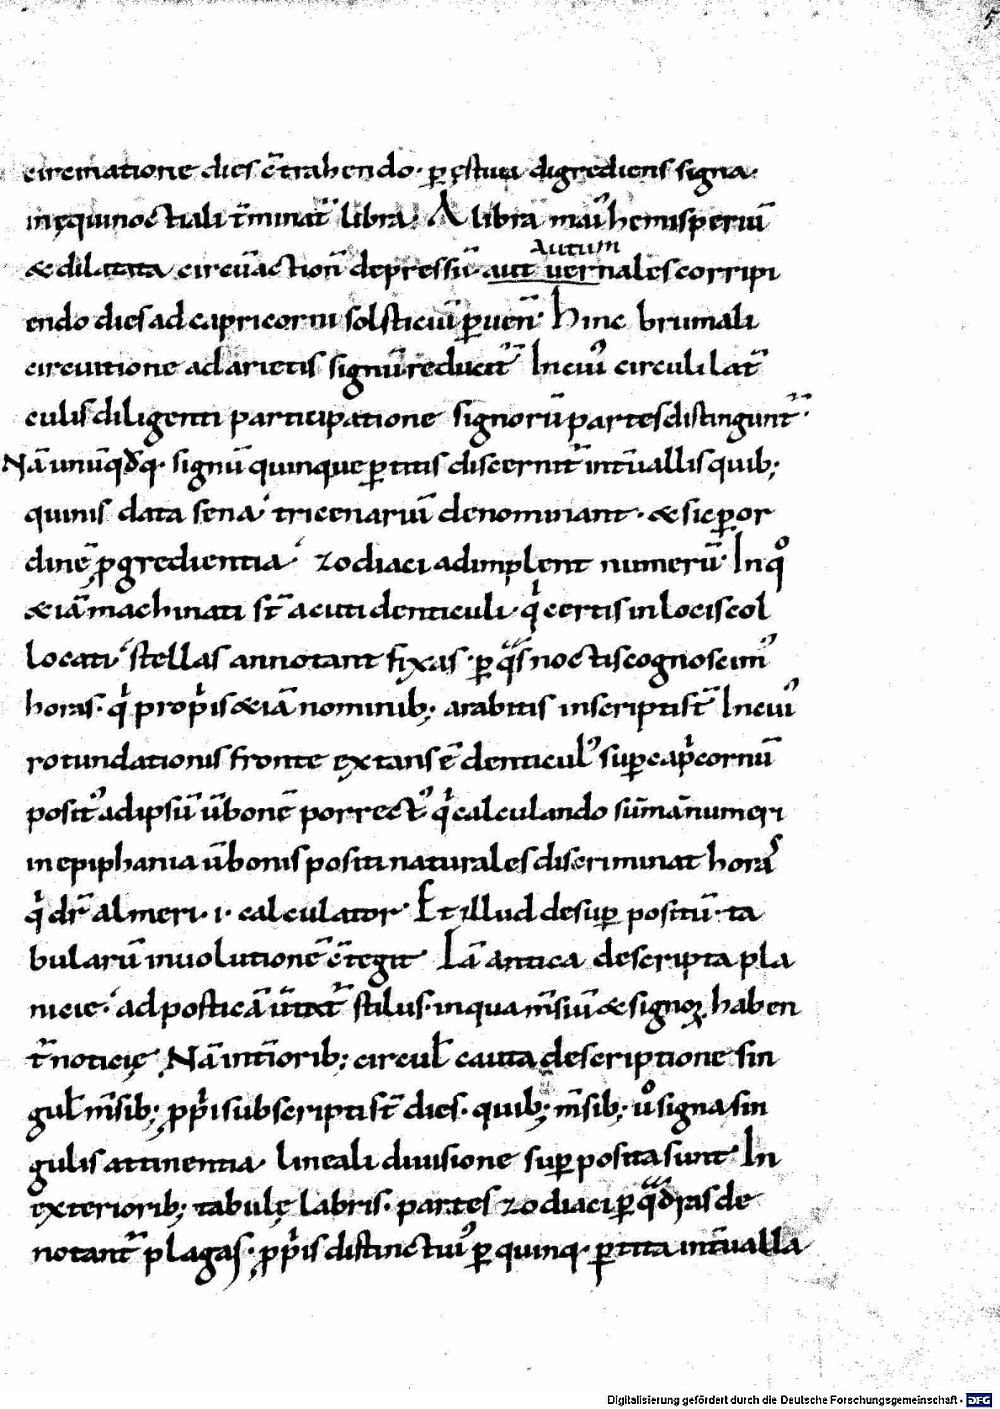 5
circinatione dies c̄trahendo· ꝑ ęstiua digrediens signa·
in ęquinoctiali t̄minat᷑ libra· A libra maı᷒ hemisperiū
Autum
& dilatata circūactiōn depressū· aut uernales corripi
endo dies ad capricorni solsticiū ꝑuen̄· Hinc brumali
circuitione ad arietis signū reducit᷑ In cuı᷒ circuli lat̄
culis diligenti participatione signorū partes distingunt᷑·
Nā unūq̄dq· signū quinque ꝑtitis discernit᷑ int̄uallis quib;
quinis data sena tricenariū denominant· & sic ꝑ or
dinē ꝓgredientia· zodiaci adimplent numerū· In qͦ
& iā machinati s̄t acuti denticuli· qͥ certis in locis col
locati stellas annotant fixas· ꝑ qᷓs noctis cognoscim᷒
horas· qͥ propͥis & iā nominib; arabitis inscripti s̄t In cuı᷒
rotundationis fronte extans ē denticul᷒ suꝑ capͥcornū
posit᷒ ad ipsū ūbonē porrect᷒ qͥ calculando sūmā numeri
in epiphania ūbonis positi naturales discriminat horaꝝ
qͥ dr̄ almeri· i· calculator· Et illud desuꝑ positū· ta
bularū inuolutionē c̄tegit· Iā antica descripta pla
nicie· ad posticā ūtat᷑ stilus· in qua m̄siū & signoꝝ haben
t᷑ noticię· Nā int̄iorib; circul̄ cauta descriptione sin
gul̄ m̄sib; ꝓpͥi subscripti s̄t dies· quib; m̄sib; uͦ signa sin
gulis attinentia· lineali diuisione suꝑ posita sunt· In
exteriorib; tabulę labris· partes zodiaci ꝑ qᷓdras de
notant᷑ plagas· ꝓpͥis distinctuı᷒ ꝑ quinq· ꝑtita int̄ualla
Digitalisierung gefördert durch die Deutsche Forschungsgemeinschaft - DFG